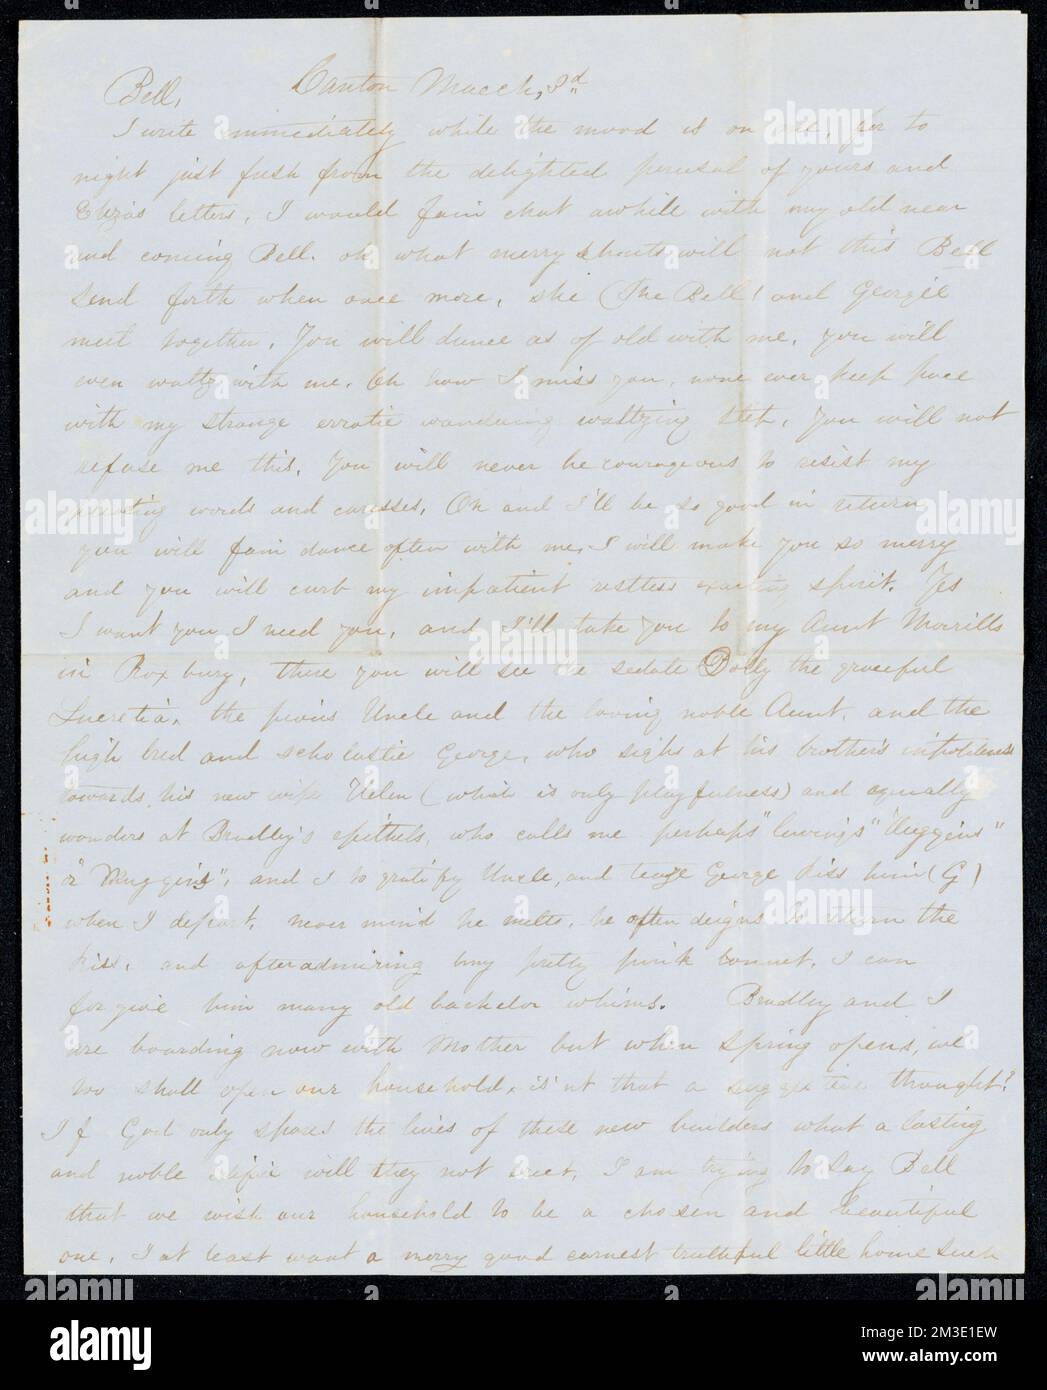 Canton March, 3d
Bell,
I write immediately while the mood is on me, for to
night just fresh from the delighted perusal of yours and
Eliza's letters, I would fain chat awhile with my old near
and coming Bell. oh what merry shouts will not this Bell
send forth when once more, she (the Bell) and Georgie
meet together. You will dance as of old with me, you will
even waltz with me. Oh how I miss you, none ever keep pace
with my strange erratic wandering waltzing step, you will not
refuse me this. You will never be courageous to resist my
words and caresses. Oh and I'll be so good in return
you will fain dance often with me, I will make you so merry
and you will curb my impatient restless exacting spirit. Yes
I want you, I need you, and I'll take you to my Aunt Morrills
in Roxbury, there you will see the sedate Dolly the graceful
Lucretia, the pious Uncle and the loving noble Aunt, and the
high bred and scholastic George, who sighs at his brother's impoliteness
towards his new wife Helen (which is only playfulness) and equally
wonders at Bradley's epithets, who calls me perhaps "
or "Muggins", and I to gratify Uncle, and tease George kiss him (G)
when I depart, never mind he melts, he often deigns to return the
kiss, and after admiring my pretty pink bonnet, I can
forgive him many old bachelor whims. Bradley and I
are boarding now with Mother but when spring opens, we
too shall open our household, is'nt that a suggestive thought?
If God only spares the lives of these new builders what a lasting
and noble will they not erect, I am trying to say Bell
that we wish our household to be a chosen and beautiful
one, I at least want a merry good earnest truthful little home such
alamy
Image ID: 2M3E1EW
www.alamy.com